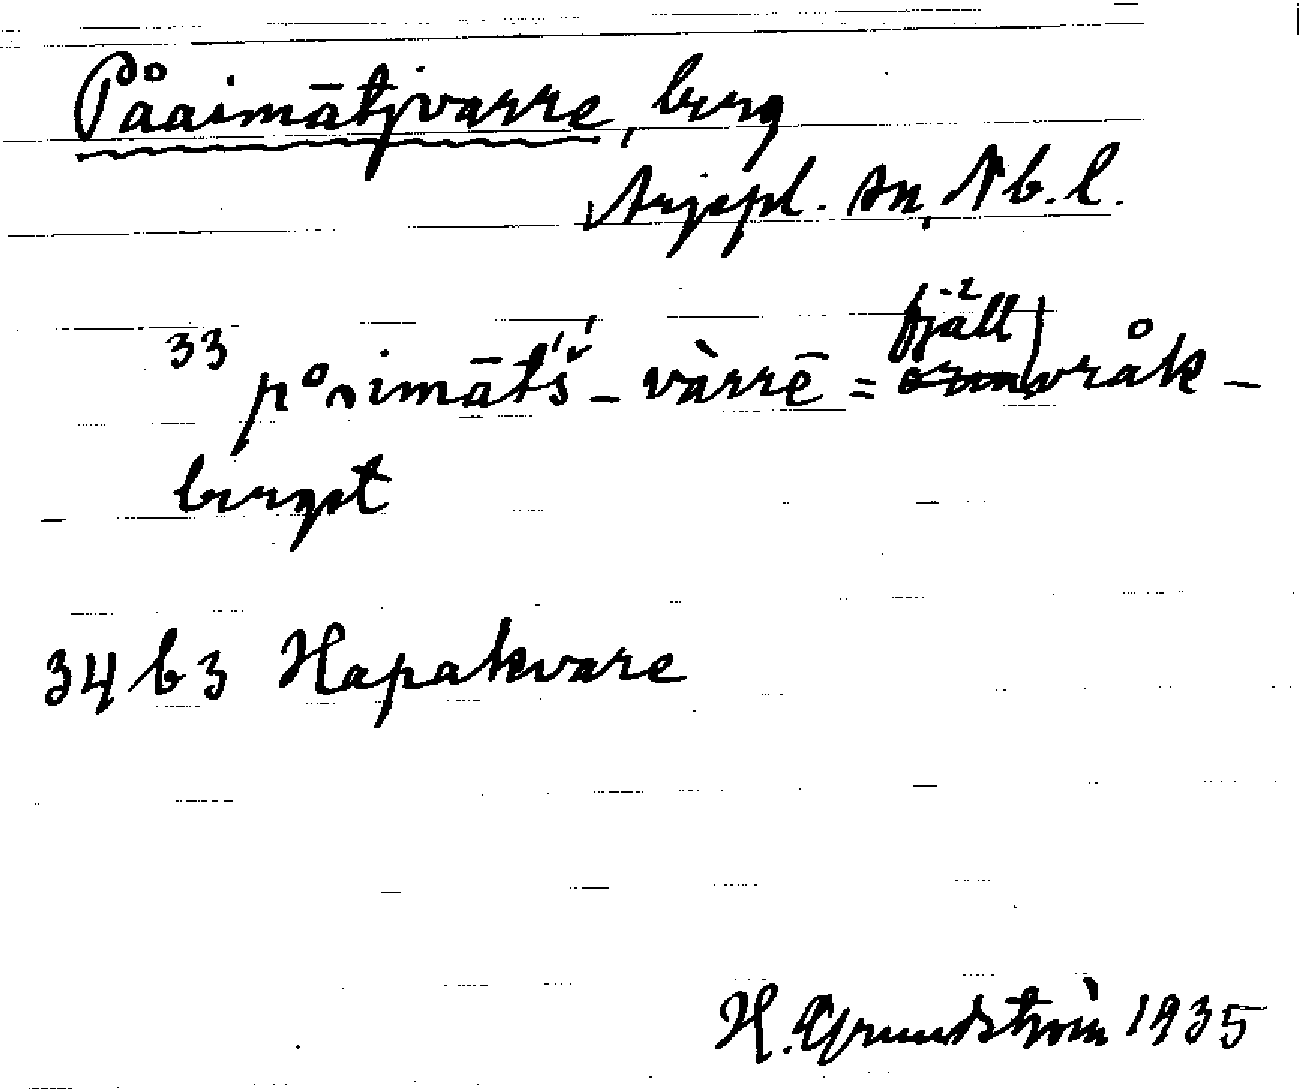 Påaimātjvarre, berg
Arjepl. sn, Nb. l.
33 påₙimāt́š́-vàrrē = fjällvråk-
berget
34 b 3 Hapakvare
H. Grundström 1935